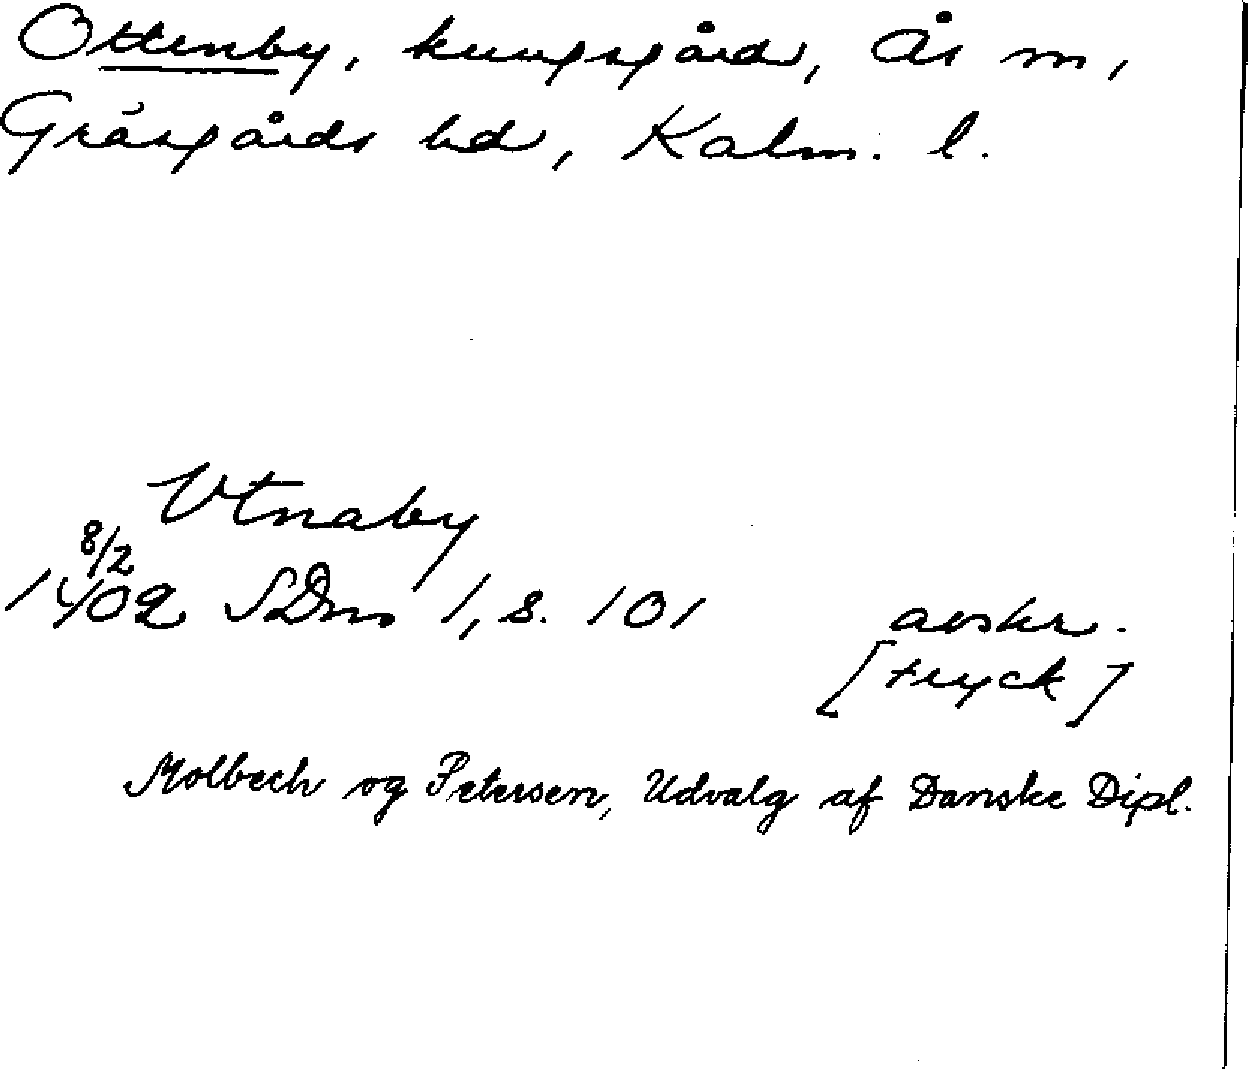 Ottenby, kungsgård, Ås sn,
Gräsgårds hd, Kalm. l.
Vtnaby
8/2
1402 SDns 1, s. 101 avskr.
[tryck]
Molbech og Petersen, Udvalg af Danske Dipl.